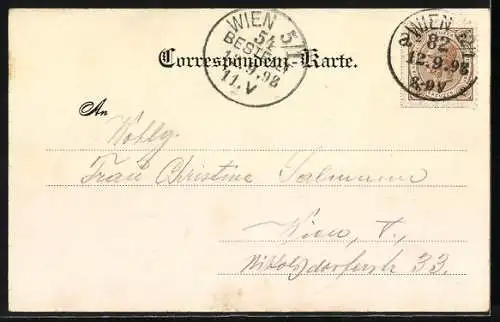 WIEN 5/1
54
BESTELLT
12.9.98
11.V
WIEN 5/1
82
12.9.98
8-9V
Correspondenz-Karte.
An
Wohlg.
Frau Christine Salmann
Wien, V.,
Nikolsdorferstr 33.